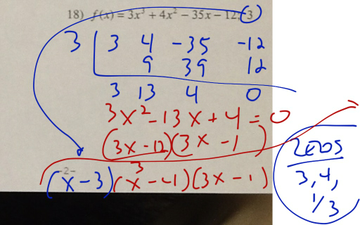 18) f(x) = 3x³ + 4x² − 35x − 12; 3
3 | 3 4 -35 -12
9 39 12
3 13 4 0
3x² - 13x + 4 = 0
(3x - 12)(3x - 1)
3
(x - 3)(x - 4)(3x - 1)
-2-
ZEOS
3, 4,
1/3